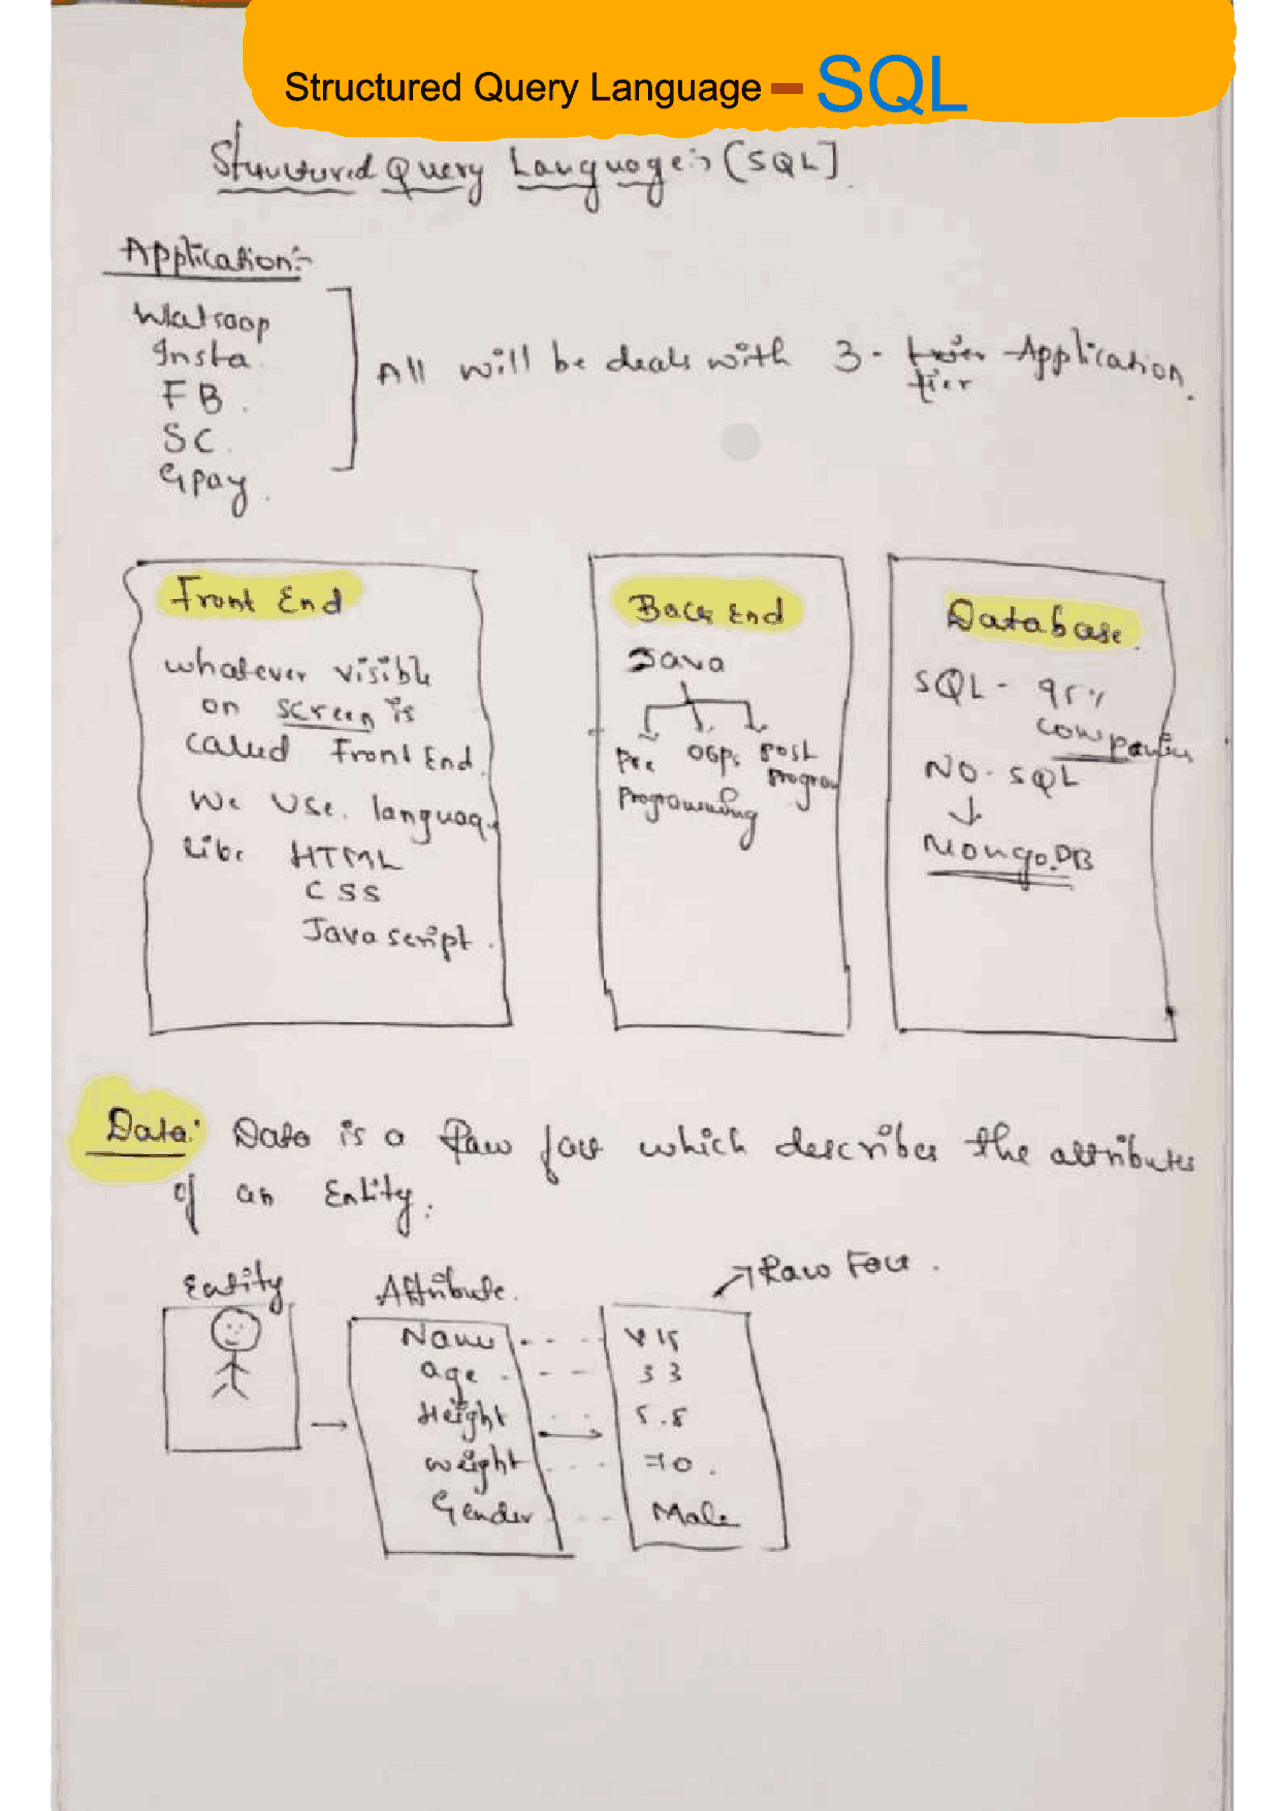 Structured Query Language – SQL
Structured Query Language:- [SQL]
Application:-
Watsaap
Insta.
FB.
SC.
Gpay.
All will be deals with 3-twier Application.
tier
Front End
whatever visible
on screen is
called Front End.
We use. language
Like HTML
CSS
Java script.
Back End
Java
Pre Programming
OOPs
Post Program
Database.
SQL - 95%
Companies
NO-SQL
MongoDB
Data: Data is a Raw fact which describes the attributes
of an Entity.
Entity
Attribute.
Raw Fact.
Name
age
Height
weight
Gender
33
5.8
70.
Male